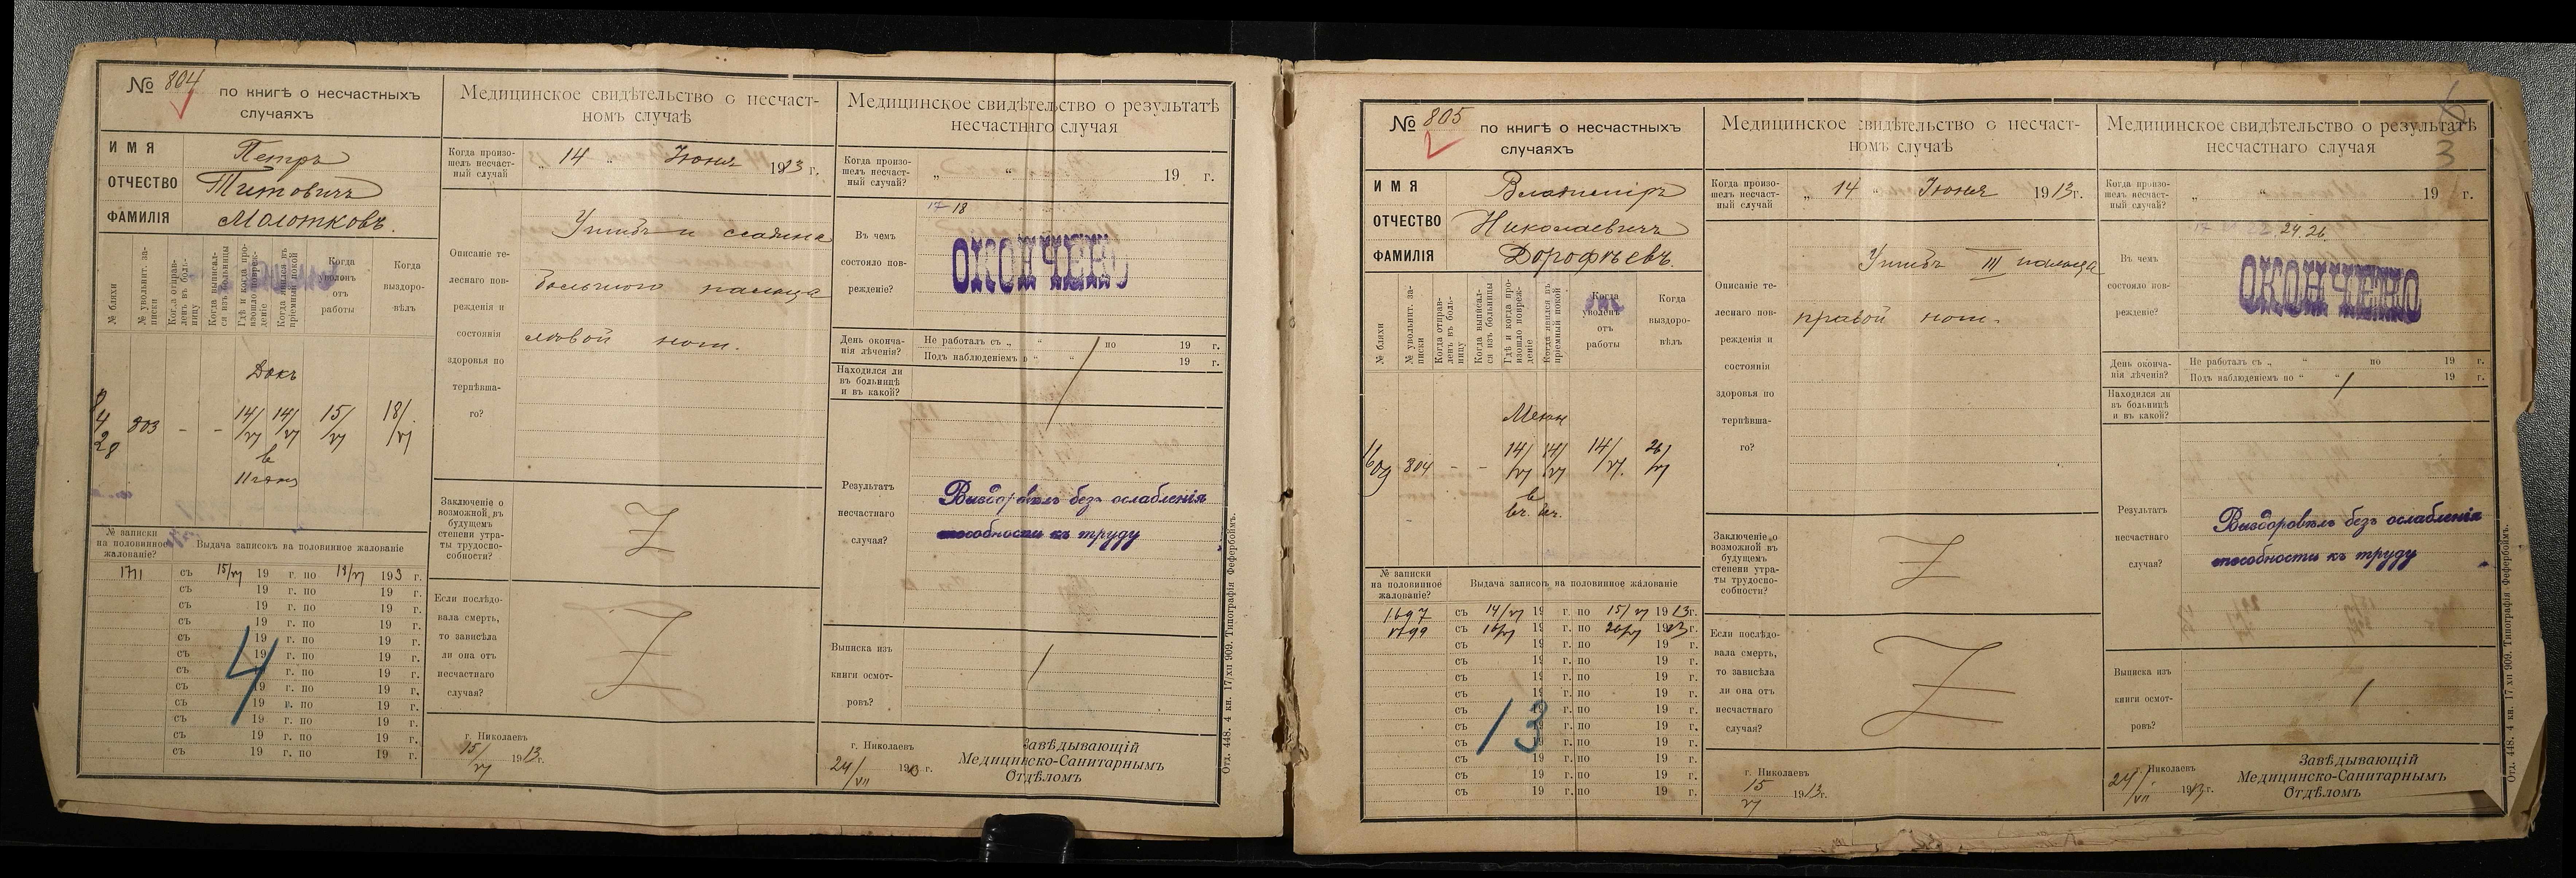 № 804 по книгѣ о несчастныхъ
случаяхъ
ИМЯ Петръ
ОТЧЕСТВО Титовичъ
ФАМИЛІЯ Молотковъ.
№ бляхи
№ увольнит. за-
писки
Когда отправ-
ленъ въ боль-
ницу
Когда выписал-
ся изъ больницы
Гдѣ и когда про-
изошло повреж-
деніе
Когда явился въ
пріемный покой
Когда
уволенъ
отъ
работы
Когда
выздоро-
вѣлъ
Докъ
8
4
28
803 - - 14/VI 14/VI 15/VI 18/VI
в
№ записки
на половинное
жалованіе?
Выдача записокъ на половинное жалованіе
1711 съ 15/VI 19 г. по 18/VI 193 г.
съ 19 г. по 19 г.
съ 19 г. по 19 г.
съ 19 г. по 19 г.
съ 19 г. по 19 г.
съ 19 г. по 19 г.
съ 19 г. по 19 г.
съ 19 г. по 19 г.
съ 19 г. по 19 г.
съ 19 г. по 19 г.
съ 19 г. по 19 г.
съ 19 г. по 19 г.
4
Медицинское свидѣтельство о несчаст-
номъ случаѣ
Когда произо-
шелъ несчаст-
ный случай
„ 14 „ Іюня 1913 г.
Описаніе те-
леснаго пов-
режденія и
состоянія
здоровья по
терпѣвша-
го?
Ушибъ и ссадина
большого пальца
лѣвой ноги.
Заключеніе о
возможной въ
будущемъ
степени утра-
ты трудоспо-
собности?
Z
Если послѣдо-
вала смерть,
то зависѣла
ли она отъ
несчастнаго
случая?
Z
г. Николаевъ
15/VI 1913г.
Медицинское свидѣтельство о результатѣ
несчастнаго случая
Когда произо-
шелъ несчаст-
ный случай?
„ “ 19 г.
17 18
Въ чемъ
состояло пов-
режденіе?
ОКОНЧЕНО
День оконча-
нія лѣченія?
Не работалъ съ „ “ по 19 г.
Подъ наблюденіемъ по “ “ 19 г.
Находился ли
въ больницѣ
и въ какой?
Результатъ
несчастнаго
случая?
Выздоровѣлъ безъ ослабленія
способности къ труду
Выписка изъ
книги осмот-
ровъ?
г. Николаевъ
24/VII 1913 г.
Завѣдывающій
Медицинско-Санитарнымъ
Отдѣломъ
Отд. 448. 4 кн. 17/хп 909. Типографія Фефербоймъ.
6
3
№ 805 по книгѣ о несчастныхъ
случаяхъ
ИМЯ Владиміръ
ОТЧЕСТВО Николаевичъ
ФАМИЛІЯ Дорофѣевъ.
№ бляхи
№ увольнит. за-
писки
Когда отправ-
ленъ въ боль-
ницу
Когда выписал-
ся изъ больницы
Гдѣ и когда про-
изошло повреж-
деніе
Когда явился въ
пріемный покой
Когда
уволенъ
отъ
работы
Когда
выздоро-
вѣлъ
1609 804 - - 14/VI 14/VI 14/VI. 26/VI
в
№ записки
на половинное
жалованіе?
Выдача записокъ на половинное жалованіе
1697 съ 14/VI 19 г. по 15/VI 1913г.
1799 съ 16/VI 19 г. по 26/VI 1913г.
съ 19 г. по 19 г.
съ 19 г. по 19 г.
съ 19 г. по 19 г.
съ 19 г. по 19 г.
съ 19 г. по 19 г.
съ 19 г. по 19 г.
съ 19 г. по 19 г.
съ 19 г. по 19 г.
съ 19 г. по 19 г.
съ 19 г. по 19 г.
13
Медицинское свидѣтельство о несчаст-
номъ случаѣ
Когда произо-
шелъ несчаст-
ный случай
„ 14 “ Іюня 1913г.
Описаніе те-
леснаго пов-
режденія и
состоянія
здоровья по
терпѣвша-
го?
Ушибъ III пальца
правой ноги.
Заключеніе о
возможной въ
будущемъ
степени утра-
ты трудоспо-
собности?
Z
Если послѣдо-
вала смерть,
то зависѣла
ли она отъ
несчастнаго
случая?
Z
г. Николаевъ
15/VI 1913г.
Медицинское свидѣтельство о результатѣ
несчастнаго случая
Когда произо-
шелъ несчаст-
ный случай?
„ “ 19 г.
17 22 24 26.
Въ чемъ
состояло пов-
режденіе?
ОКОНЧЕНО
День оконча-
нія лѣченія?
Не работалъ съ „ “ по 19 г.
Подъ наблюденіемъ по “ “ 19 г.
Находился ли
въ больницѣ
и въ какой?
Результатъ
несчастнаго
случая?
Выздоровѣлъ безъ ослабленія
способности къ труду
Выписка изъ
книги осмот-
ровъ?
г. Николаевъ
24/VII 1913г.
Завѣдывающій
Медицинско-Санитарнымъ
Отдѣломъ
Отд. 448. 4 кн. 17/хп 909. Типографія Фефербоймъ.